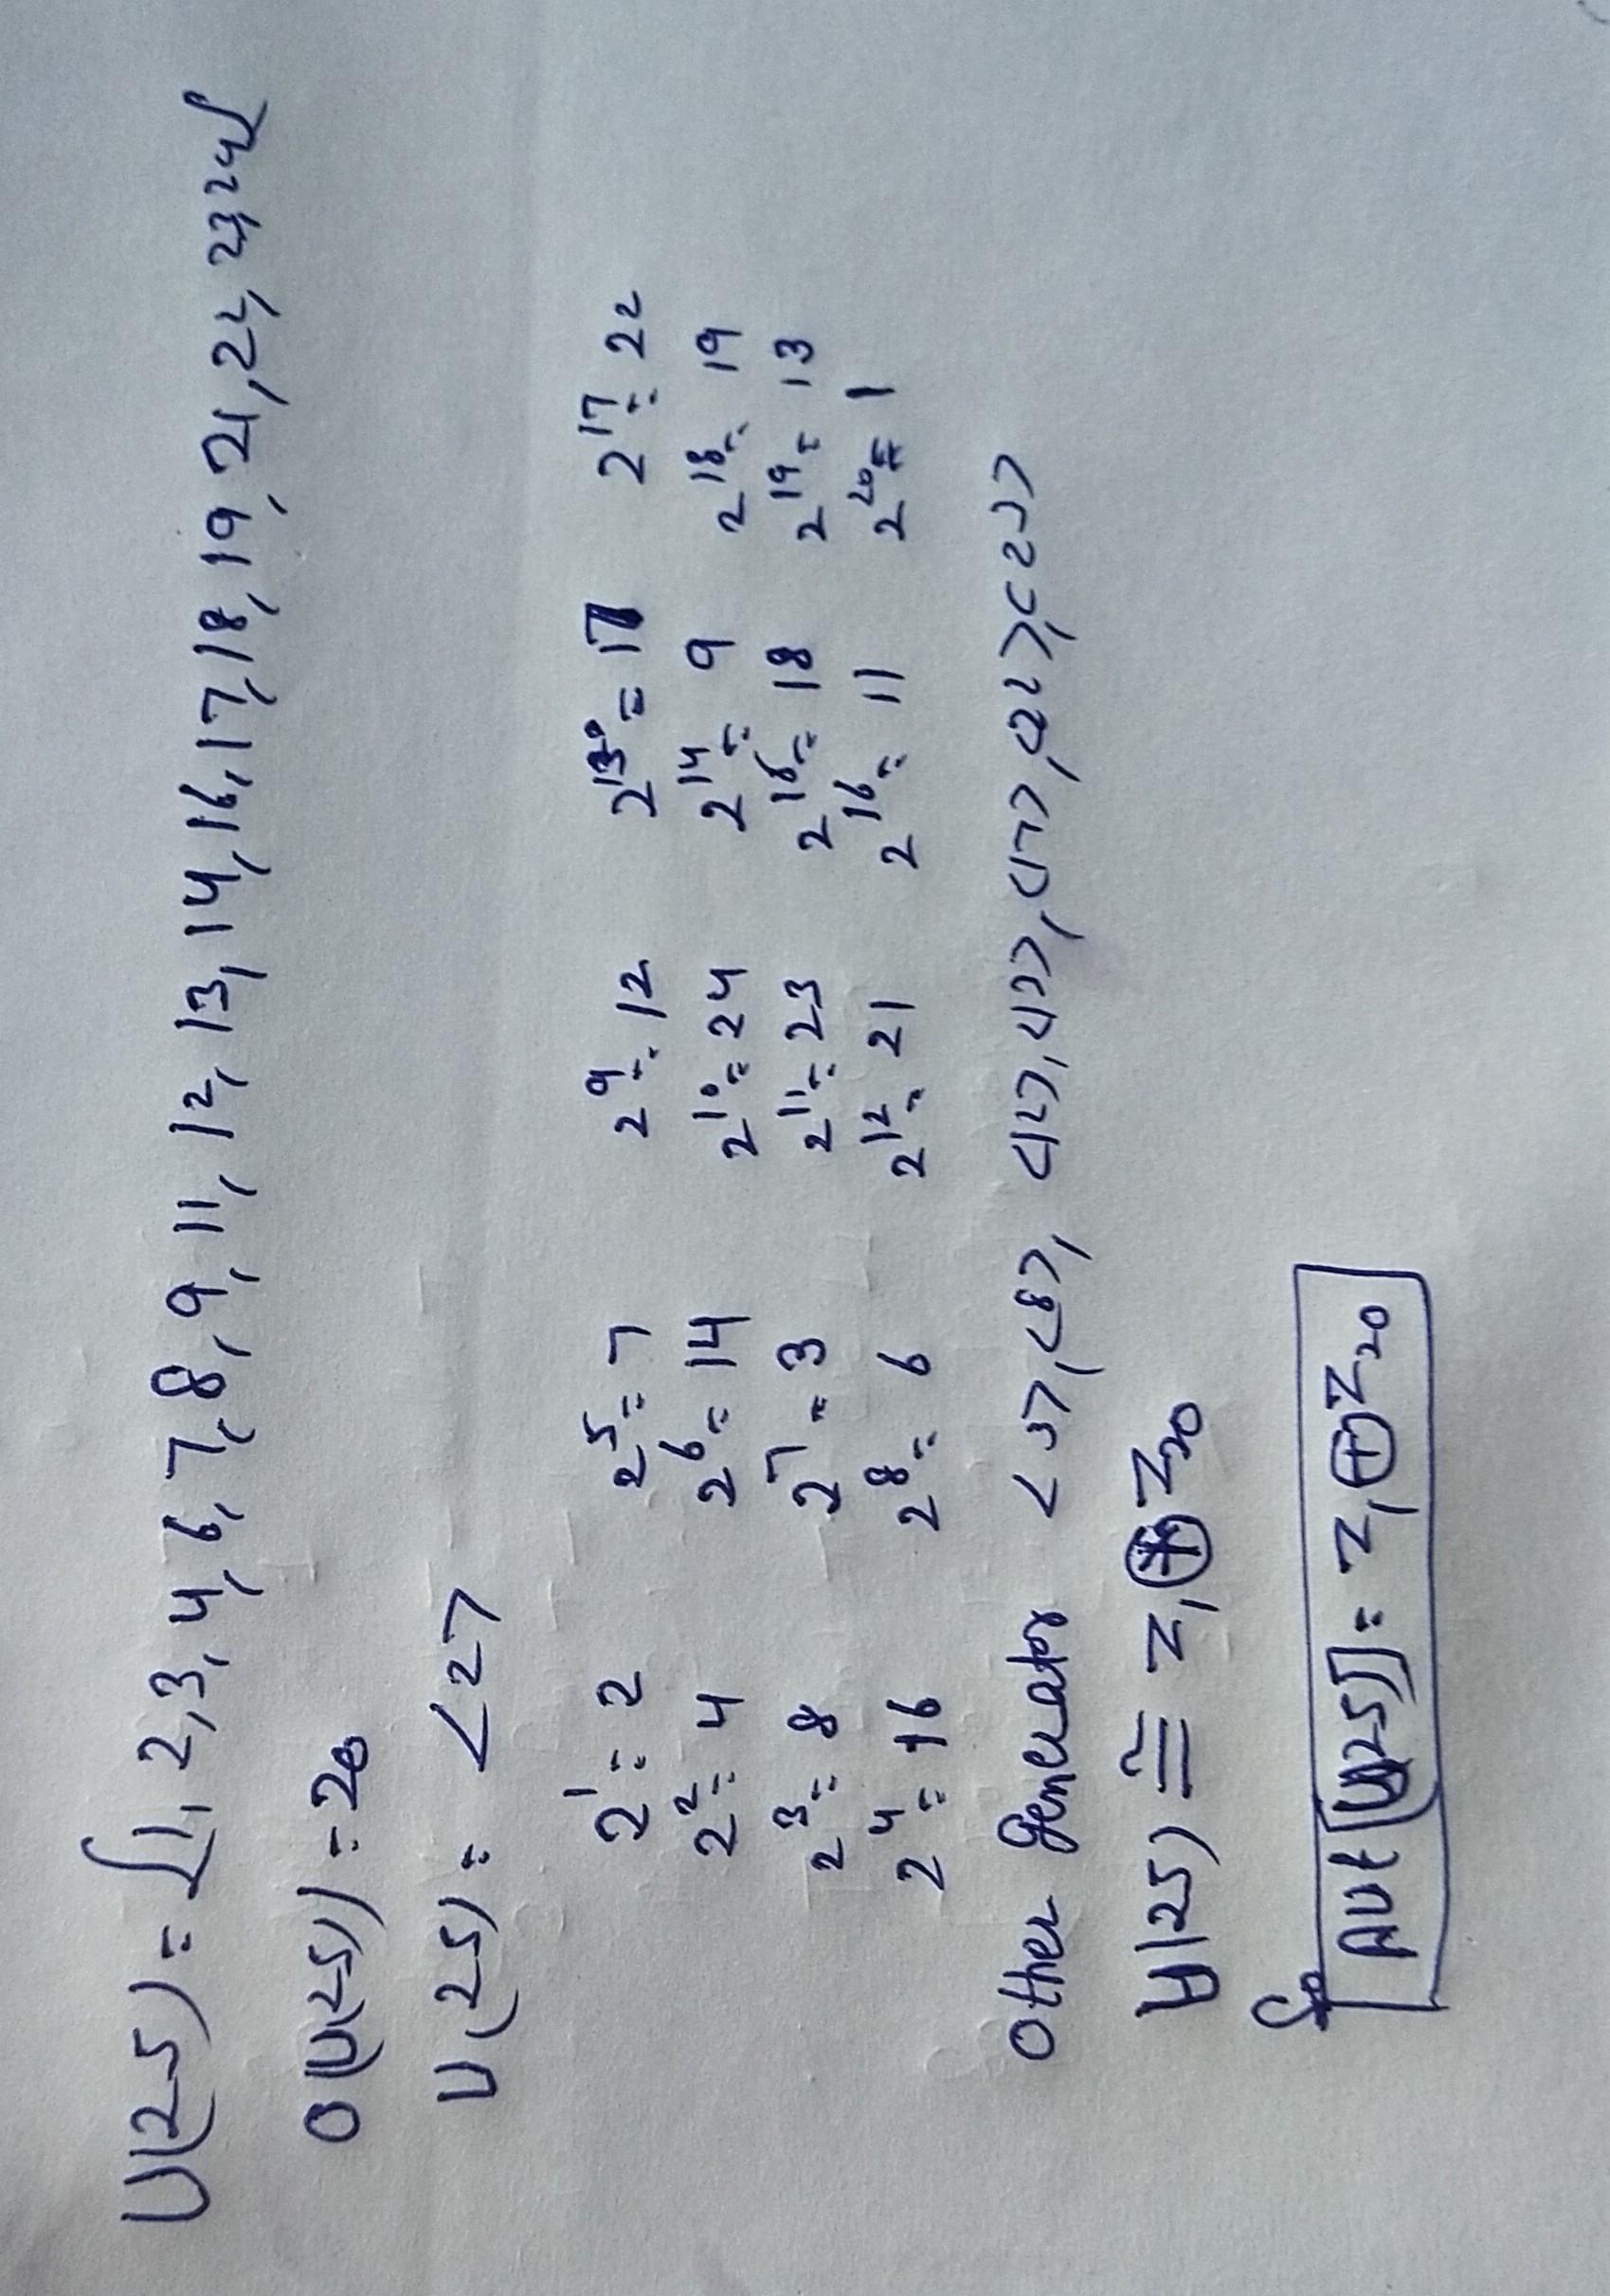 U(25) = {1, 2, 3, 4, 6, 7, 8, 9, 11, 12, 13, 14, 16, 17, 18, 19, 21, 22, 23, 24}
O(U(25)) = 20
U(25) = <2>
2¹ = 2 2⁵ = 7 2⁹ = 12 2¹³ = 17 2¹⁷ = 22
2² = 4 2⁶ = 14 2¹⁰ = 24 2¹⁴ = 9 2¹⁸ = 19
2³ = 8 2⁷ = 3 2¹¹ = 23 2¹⁵ = 18 2¹⁹ = 13
2⁴ = 16 2⁸ = 6 2¹² = 21 2¹⁶ = 11 2²⁰ = 1
Other generator <3>, <8>, <12>, <13>, <17>, <22>, <23>
U(25) ≅ Z₁ ⊕ Z₂₀
Aut(U(25)) = Z₁ ⊕ Z₂₀